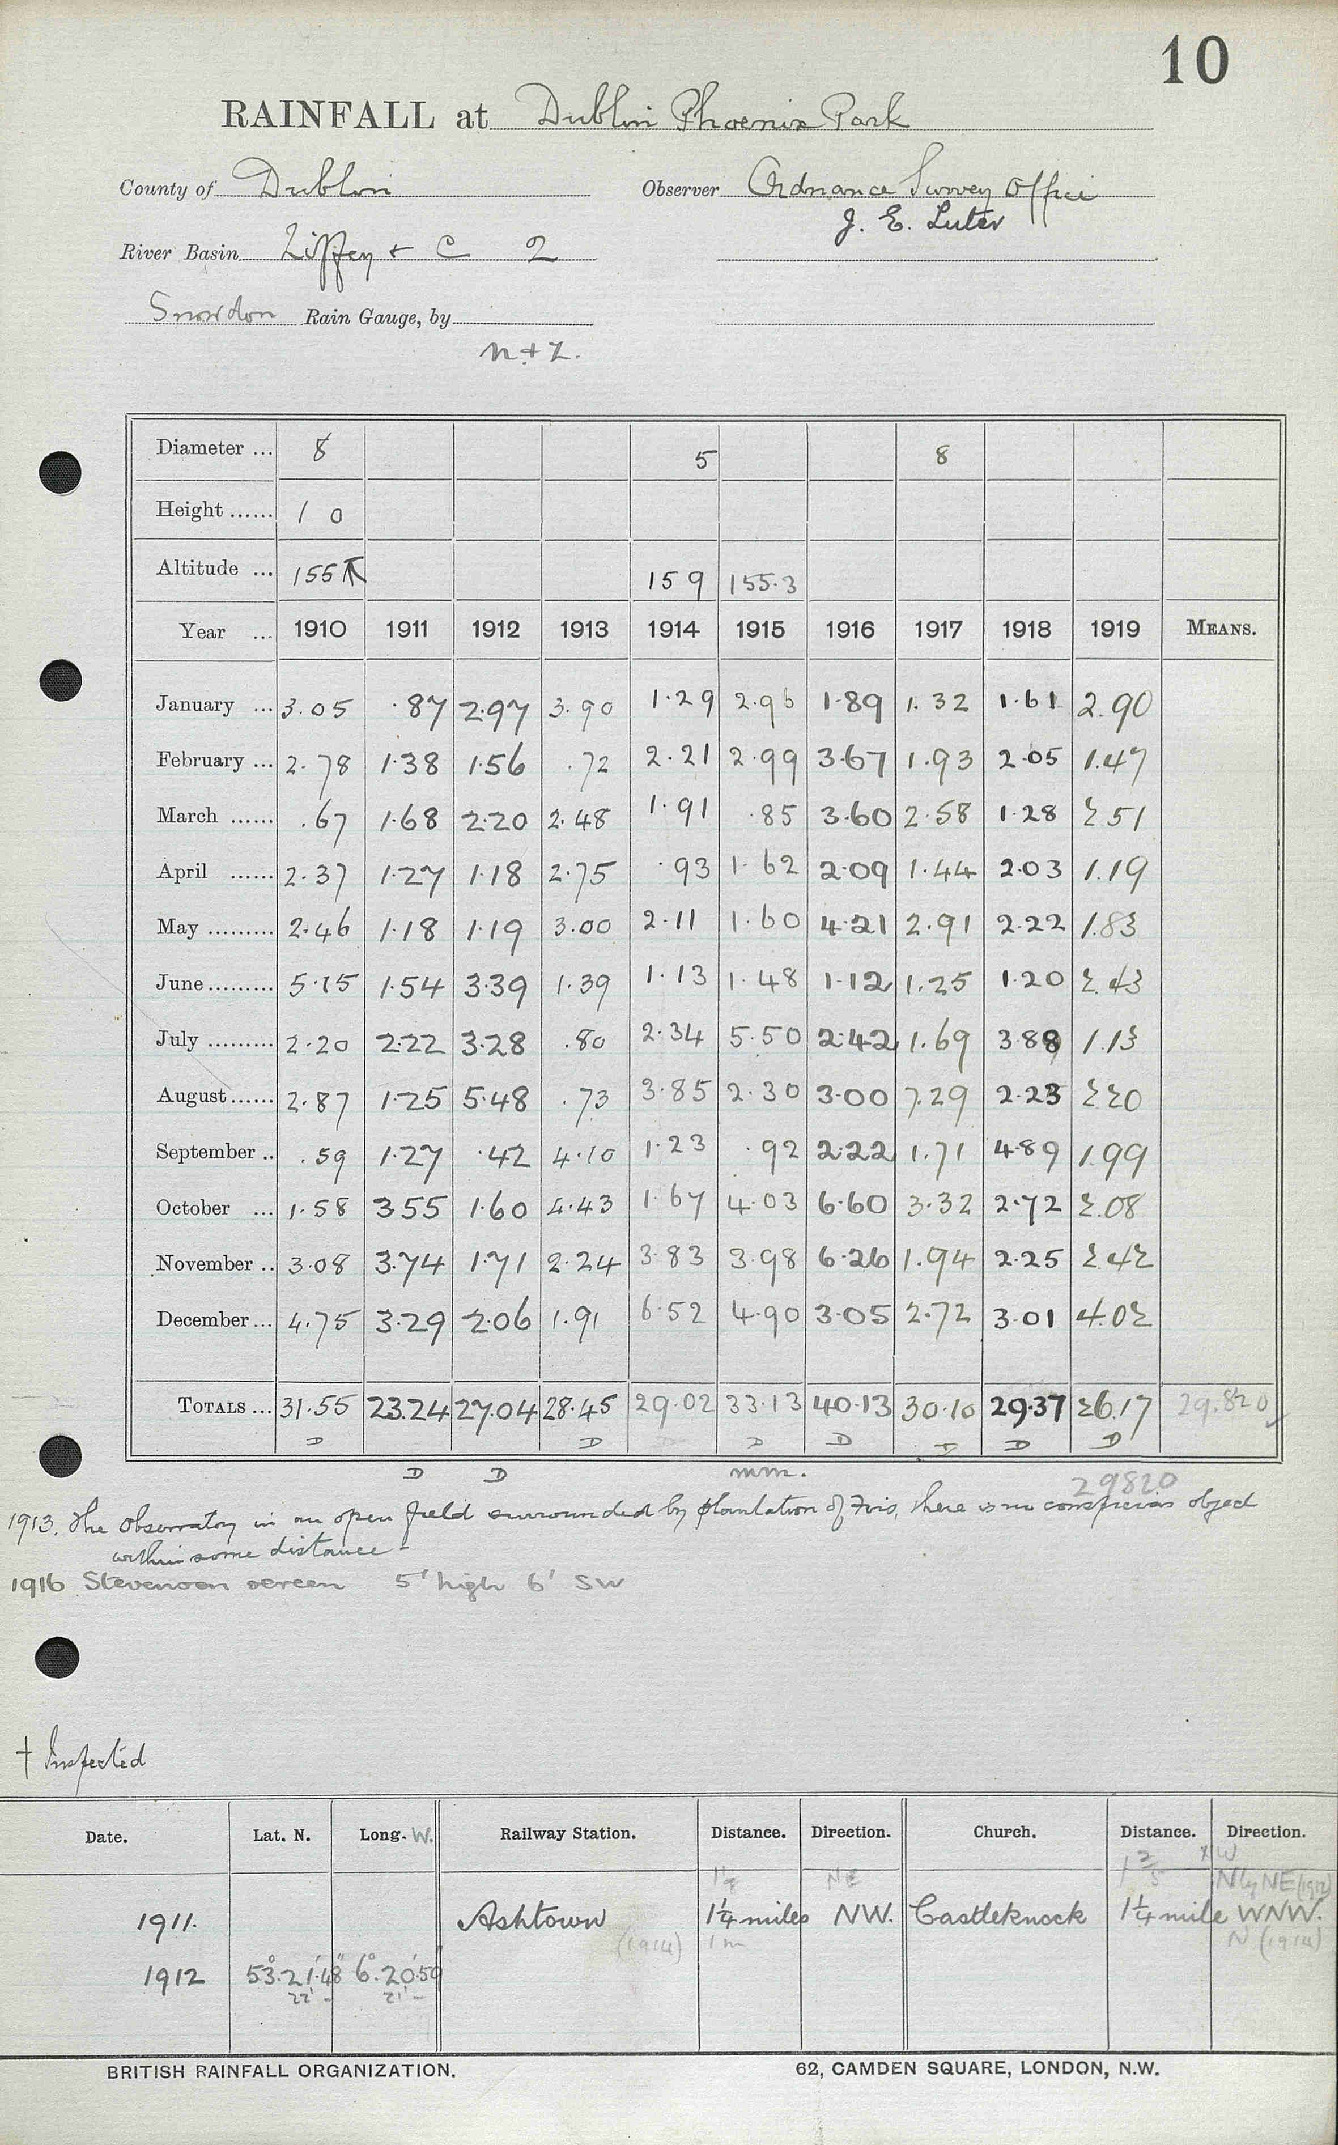 10
RAINFALL at Dublin Phoenix Park
County of Dublin Observer Ordnance Survey Office
J. E. Luter
River Basin Liffey + C 2
Snowdon Rain Gauge, by
n + Z.
Diameter ... 8 5 8
Height ...... 1 0
Altitude ... 155 159 155.3
Year ... 1910 1911 1912 1913 1914 1915 1916 1917 1918 1919 MEANS.
January ... 3.05 .87 2.97 3.90 1.29 2.96 1.89 1.32 1.61 2.90
February ... 2.78 1.38 1.56 .72 2.21 2.99 3.67 1.93 2.05 1.47
March ...... .67 1.68 2.20 2.48 1.91 .85 3.60 2.58 1.28 2 51
April ...... 2.37 1.27 1.18 2.75 .93 1.62 2.09 1.44 2.03 1.19
May ......... 2.46 1.18 1.19 3.00 2.11 1.60 4.21 2.91 2.22 1.83
June ......... 5.15 1.54 3.39 1.39 1.13 1.48 1.12 1.25 1.20 2.43
July ......... 2.20 2.22 3.28 .80 2.34 5.50 2.42 1.69 3.88 1.13
August ...... 2.87 1.25 5.48 .73 3.85 2.30 3.00 7.29 2.23 2.20
September .. .59 1.27 .42 4.10 1.23 .92 2.22 1.71 4.89 1.99
October ... 1.58 3.55 1.60 4.43 1.67 4.03 6.60 3.32 2.72 2.08
November .. 3.08 3.74 1.71 2.24 3.83 3.98 6.26 1.94 2.25 2.42
December ... 4.75 3.29 2.06 1.91 6.52 4.90 3.05 2.72 3.01 4.02
TOTALS ... 31.55 23.24 27.04 28.45 29.02 33.13 40.13 30.10 29.37 26.17 29.820
D D D D D D D
D D mm. 29820
1913. The Observatory in an open field surrounded by plantation of Firs, there is no conspicuous object
within some distance -
1916 Stevenson screen 5' high 6' SW
† Inspected
Date. Lat. N. Long. W. Railway Station. Distance. Direction. Church. Distance. Direction.
1 1/8 NE 1 2/5 NW
Nly NE (1912)
1911. Ashtown 1¼ miles NW. Castleknock 1¼ mile WNW.
(1914) 1 m N (1914)
1912 53°.21'.48" 6°.20'.50"
22' - 21' -
BRITISH RAINFALL ORGANIZATION. 62, CAMDEN SQUARE, LONDON, N.W.